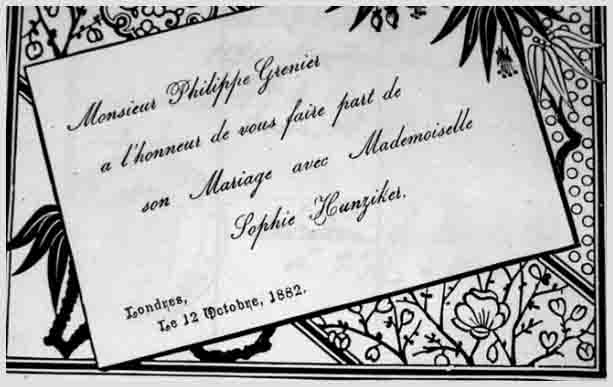 Monsieur Philippe Grenier
a l'honneur de vous faire part de
son Mariage avec Mademoiselle
Sophie Hunziker.
Londres,
Le 12 Octobre, 1882.